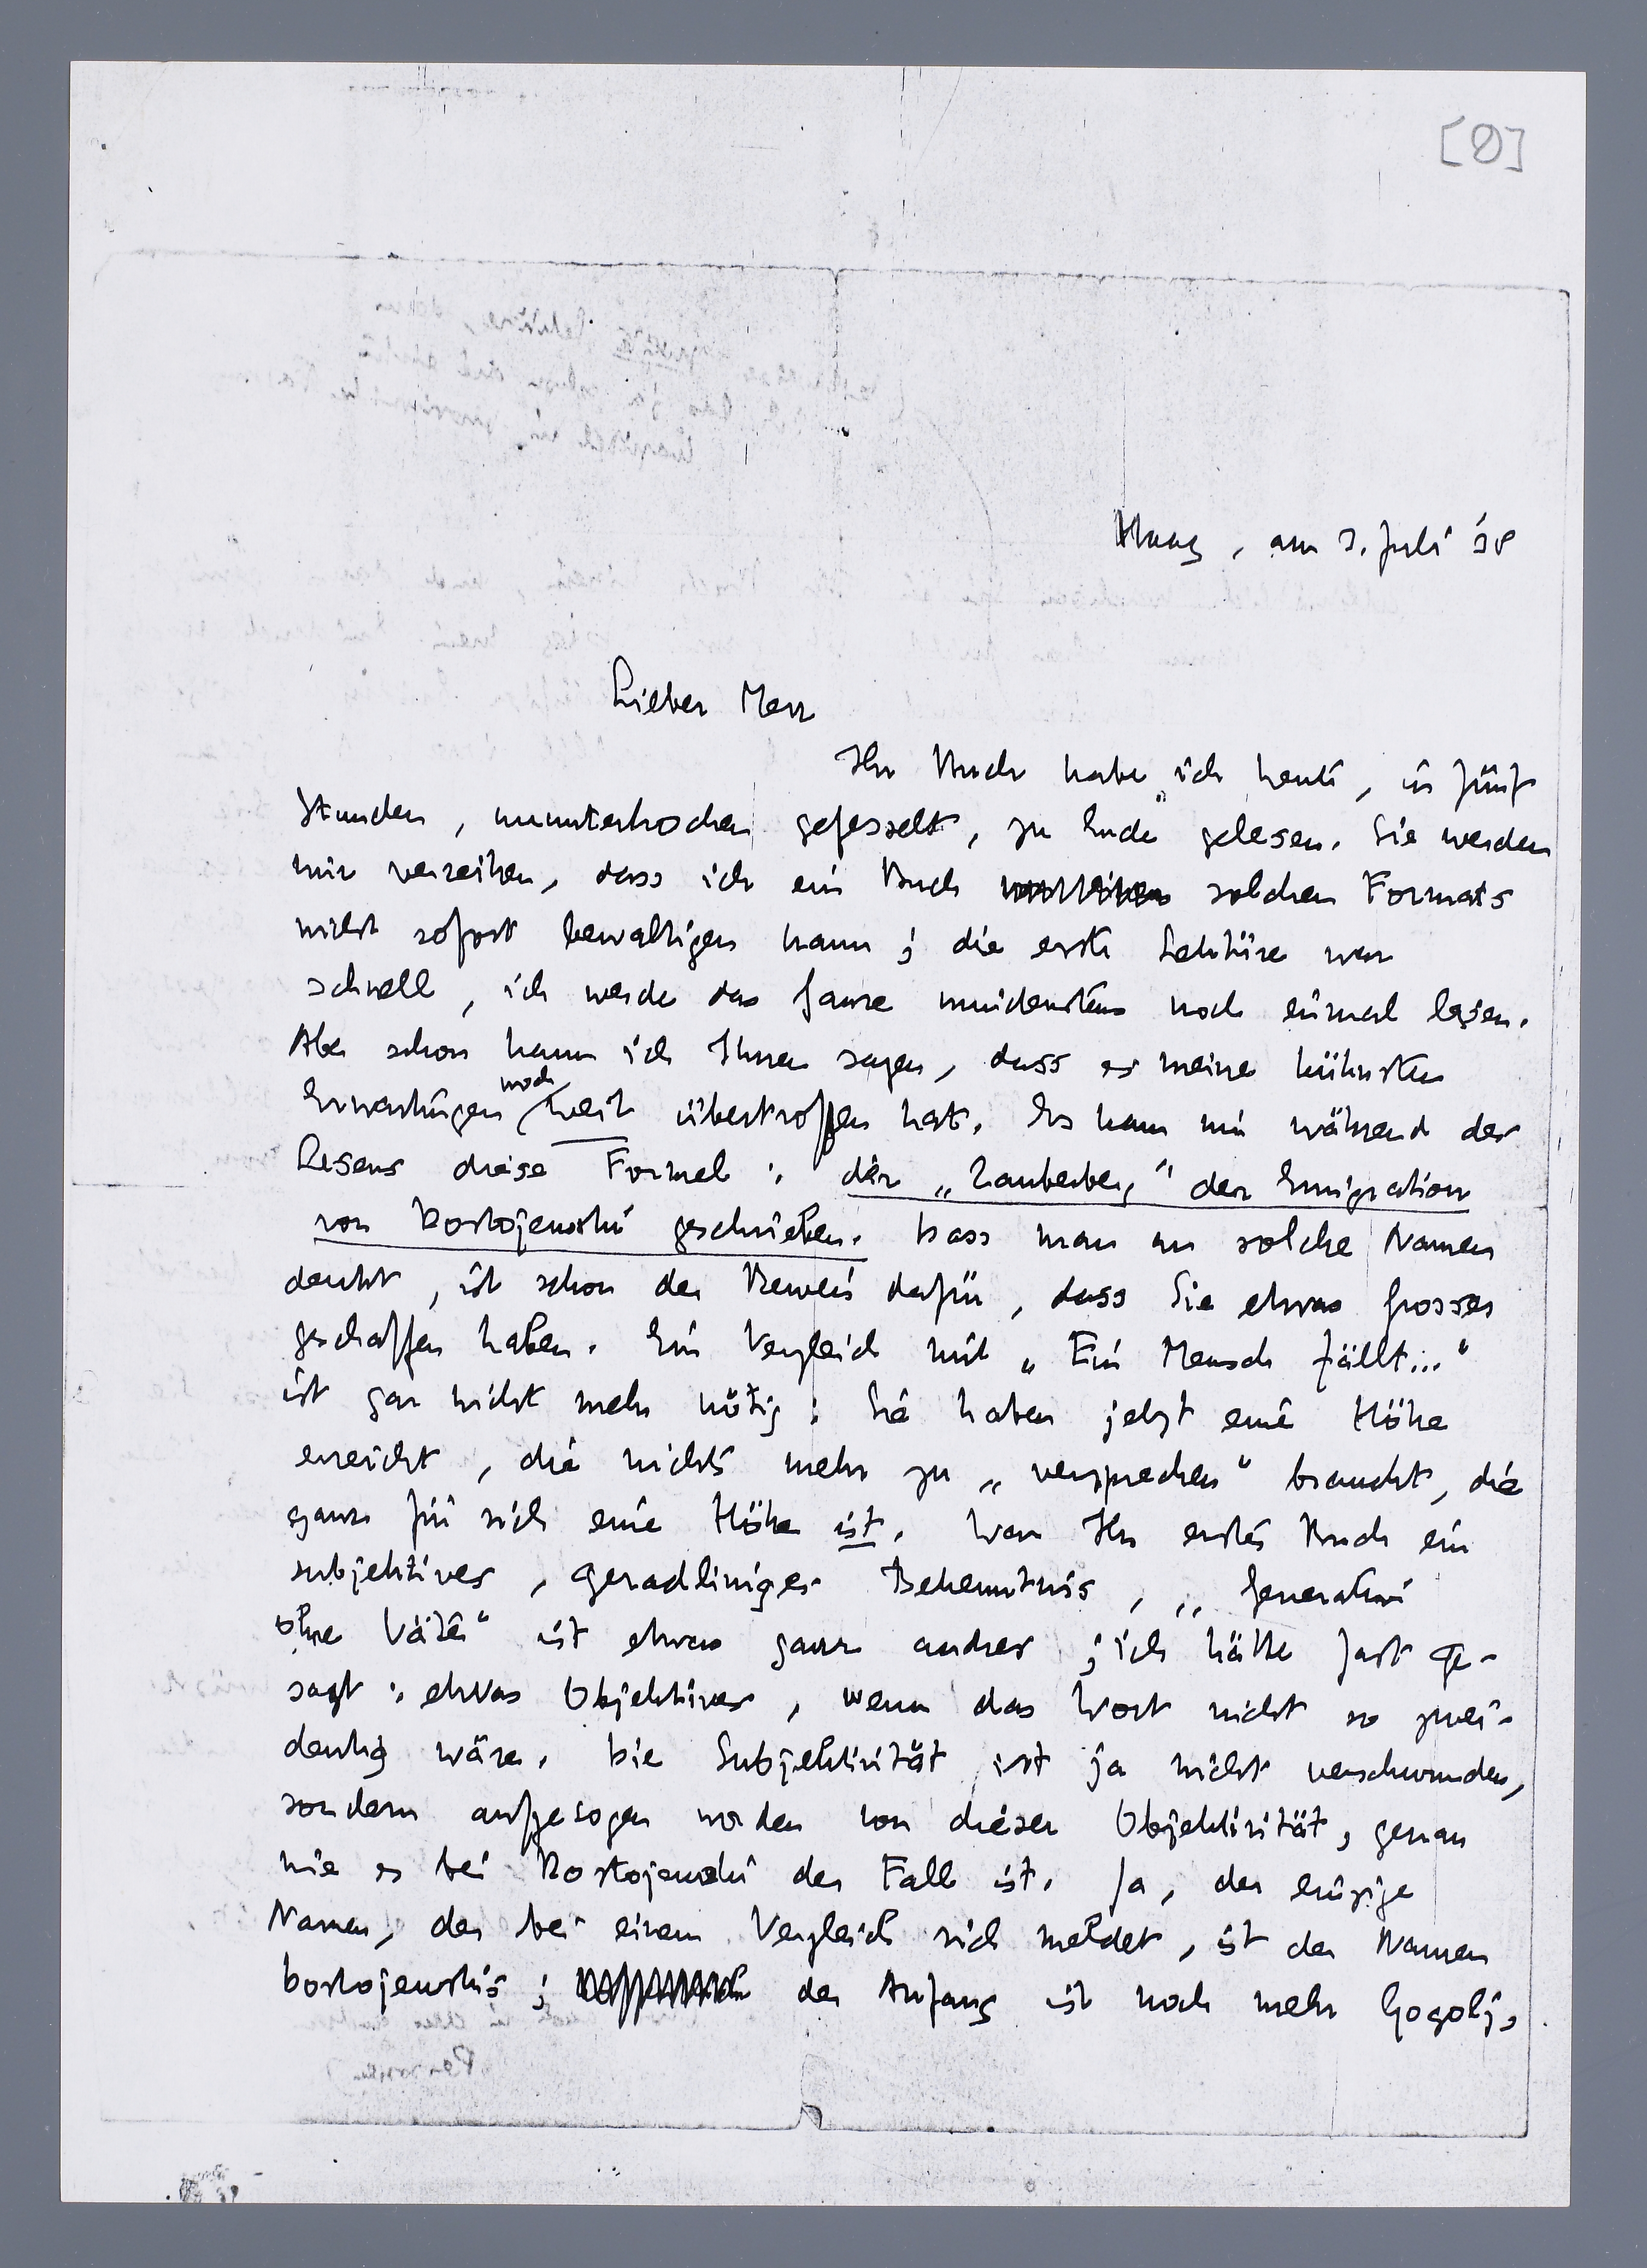 [0]
Haag, am 3. Juli 38
Lieber Herr
Ihr Buch habe ich heute, in fünf
Stunden, ununterbrochen gefesselt, zu Ende gelesen. Sie werden
mir verzeihen, dass ich ein Buch solchen Formats
nicht sofort bewältigen kann; die erste Lektüre war
schnell, ich werde das Ganze mindestens noch einmal lesen.
Aber schon kann ich Ihnen sagen, dass es meine kühnsten
Erwartungen noch weit übertroffen hat. Es kam mir während des
Lesens diese Formel: der „Zauberberg" der Emigration
von Dostojewski geschrieben. Dass man an solche Namen
denkt, ist schon der Beweis dafür, dass Sie etwas Grosses
geschaffen haben. Ein Vergleich mit „Ein Mensch fällt..."
ist gar nicht mehr nötig: Sie haben jetzt eine Höhe
erreicht, die nichts mehr zu „versprechen" braucht, die
ganz für sich eine Höhe ist. War Ihr erstes Buch ein
subjektives, geradliniges Bekenntnis, „Generation
ohne Väter" ist etwas ganz andres; ich hätte fast ge-
sagt: etwas Objektives, wenn das Wort nicht so zwei-
deutig wäre. Die Subjektivität ist ja nicht verschwunden,
sondern aufgesogen worden von dieser Objektivität, genau
wie es bei Dostojewski der Fall ist. Ja, der einzige
Namen, der bei einem Vergleich sich meldet, ist der Namen
Dostojewskis; der Anfang ist noch mehr Gogolj,